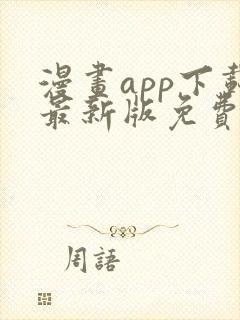 漫畫app下載
最新版免費
周語